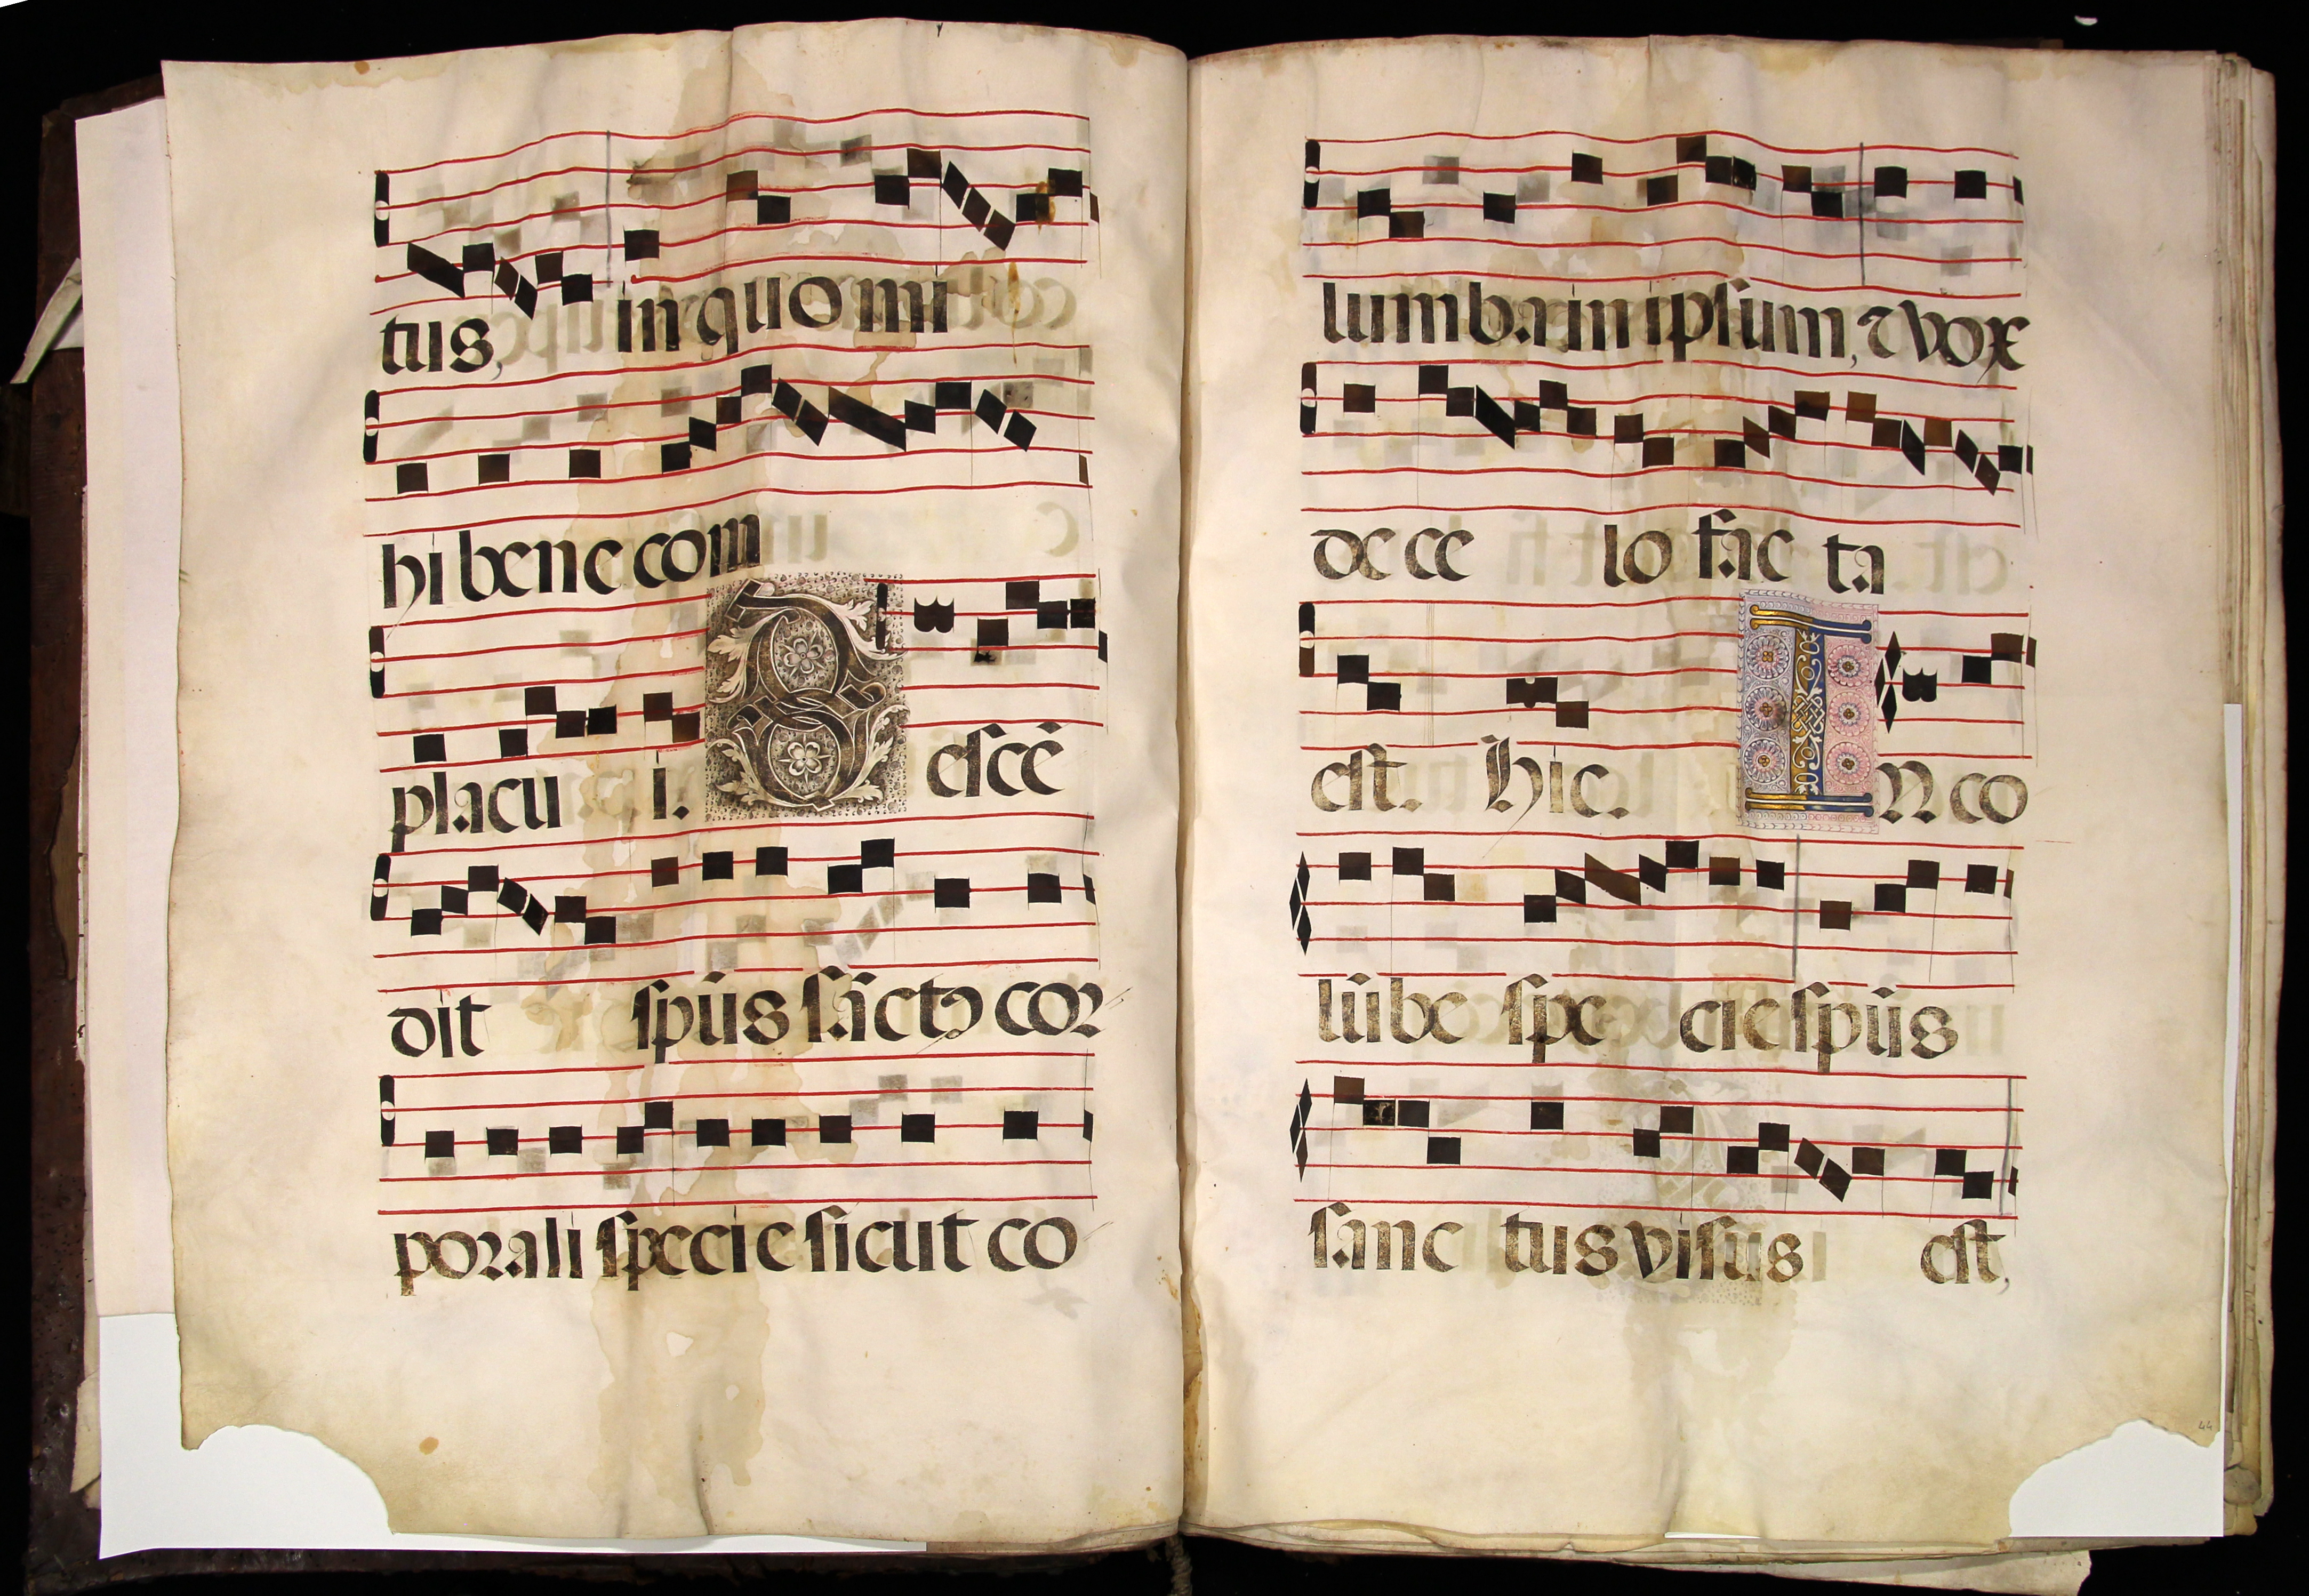 tus, in quo mi
hi bene com
placu i. D escē
dit sp̄us sācto cor
porali specie sicut co
lumba in ipsum, ⁊ vox
de ce lo fac ta
est. hic. I n co
lūbe spe cie sp̄us
sanc tus visus est,
44